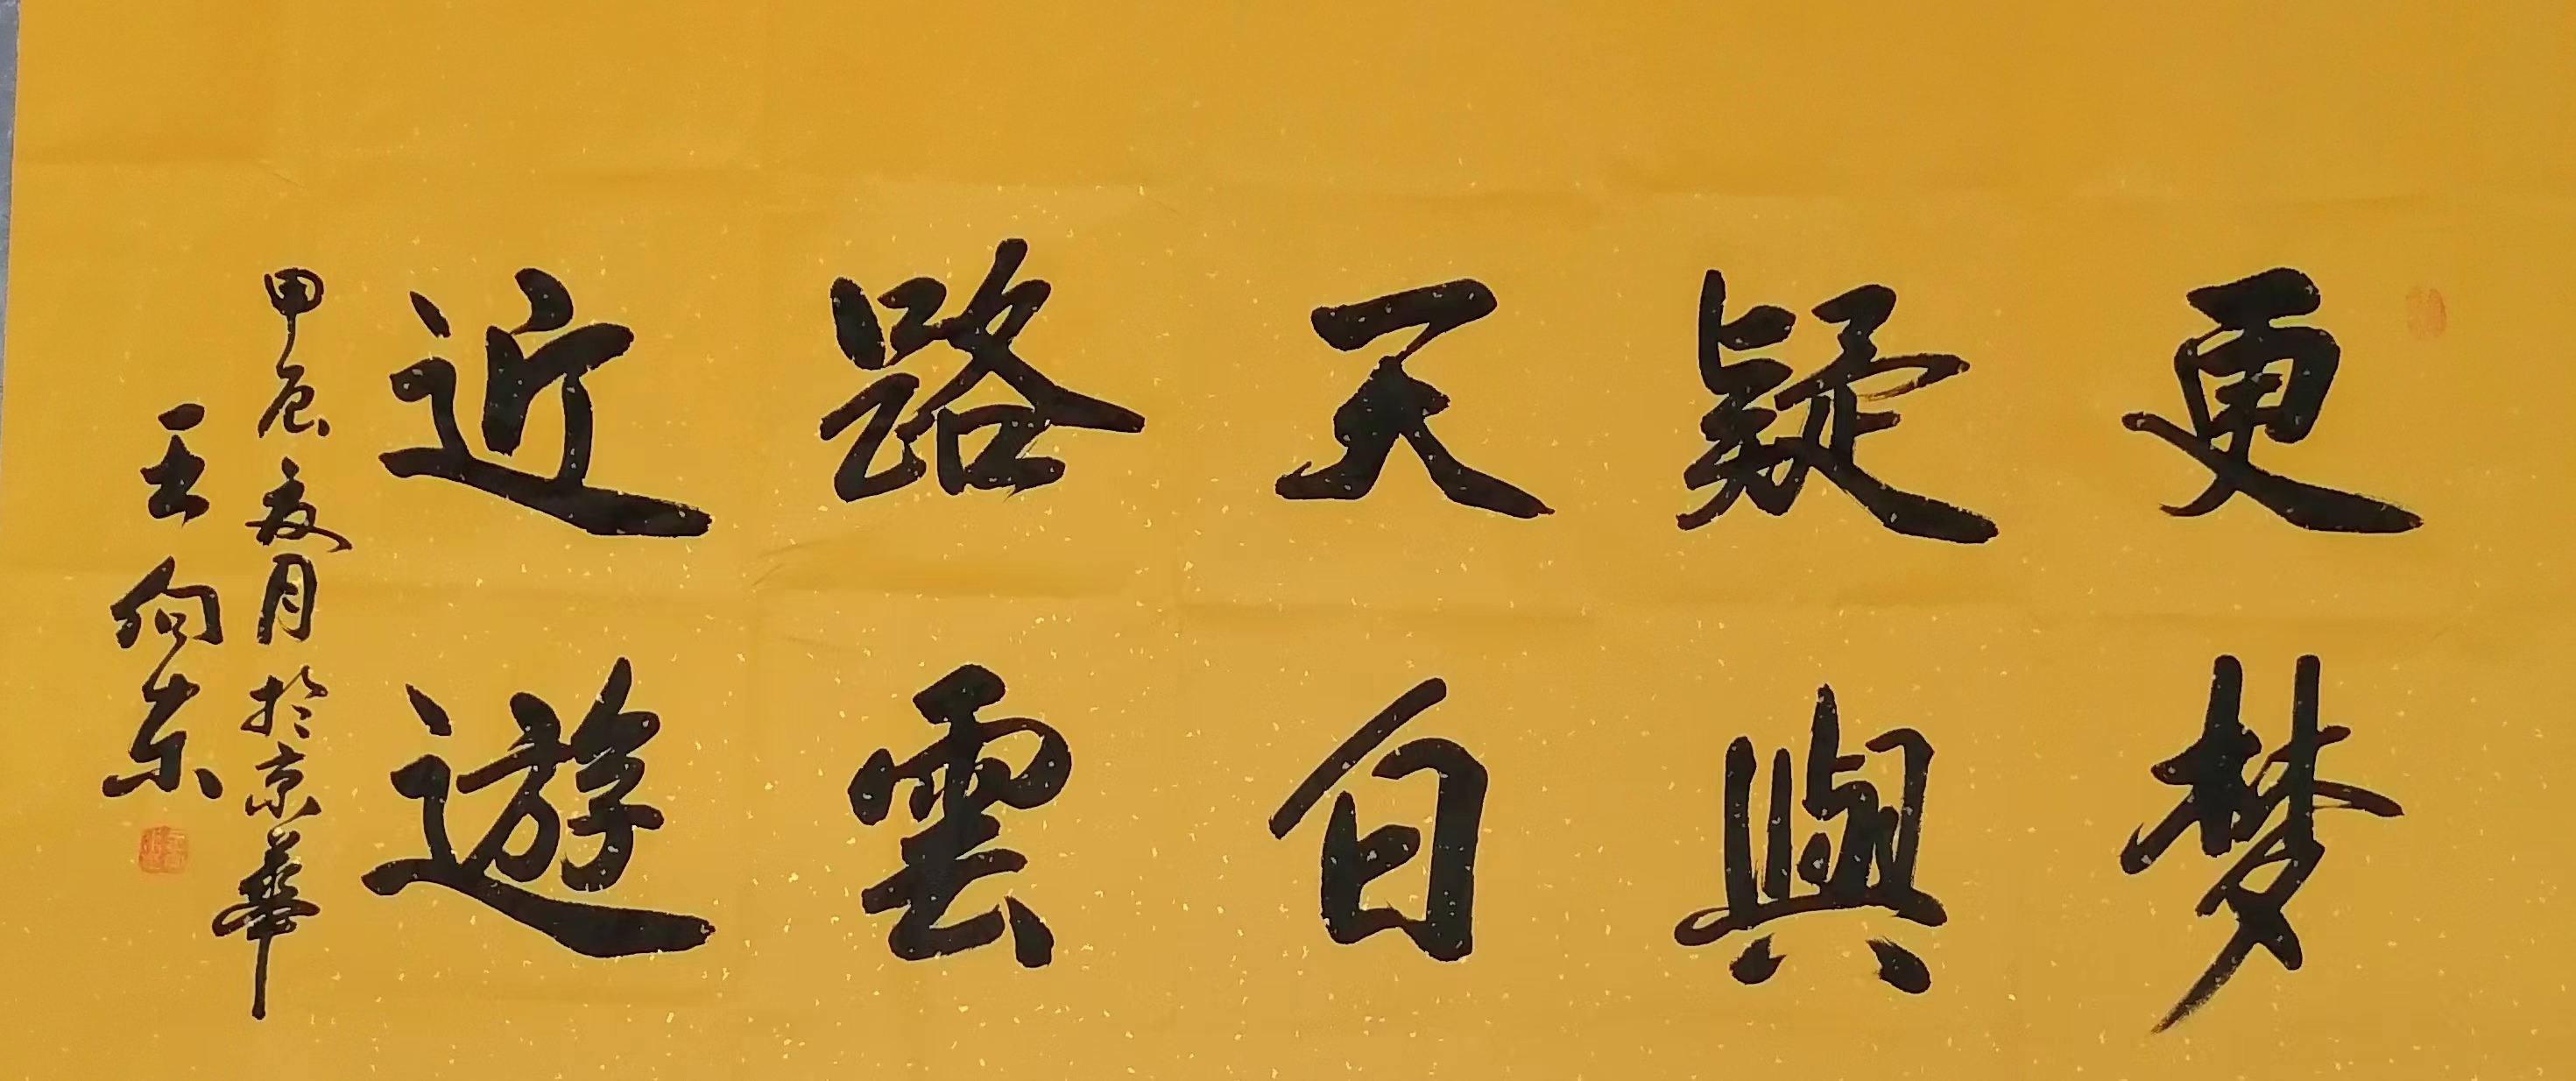 更疑天路近
梦與白雲遊
甲辰夏月於京華
王向东